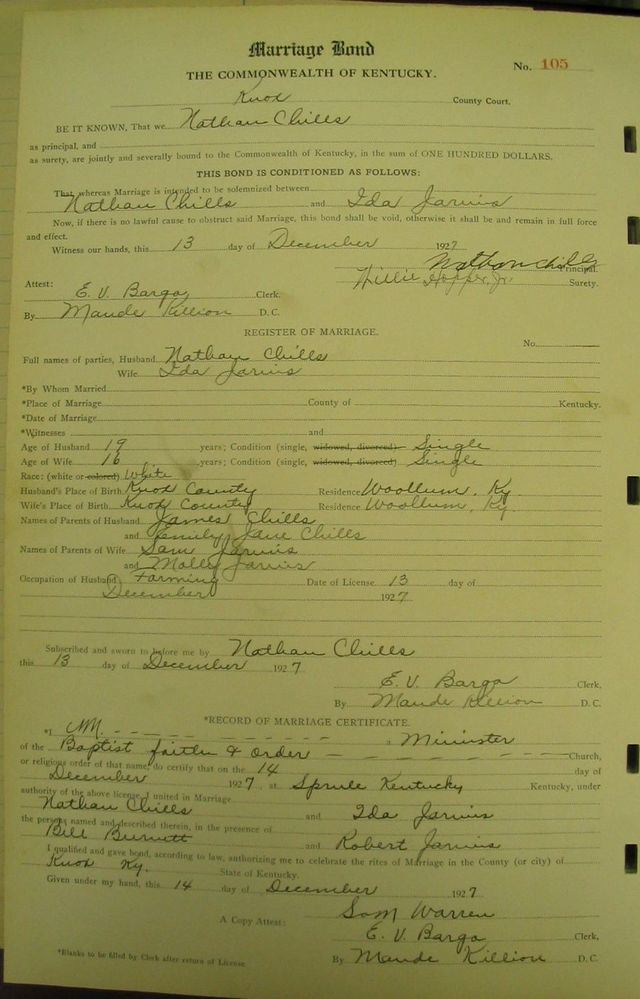 Marriage Bond
No. 105
THE COMMONWEALTH OF KENTUCKY.
Knox County Court.
BE IT KNOWN, That we Nathan Chills
as principal, and
as surety, are jointly and severally bound to the Commonwealth of Kentucky, in the sum of ONE HUNDRED DOLLARS.
THIS BOND IS CONDITIONED AS FOLLOWS:
That whereas Marriage is intended to be solemnized between
Nathan Chills and Ida Jarvis
Now, if there is no lawful cause to obstruct said Marriage, this bond shall be void, otherwise it shall be and remain in full force
and effect.
Witness our hands, this 13 day of December 1927
Nathan Chills Principal.
Willie Hopper, Jr. Surety.
Attest:
E. V. Barga Clerk.
By Maude Killion D. C.
REGISTER OF MARRIAGE.
No.
Full names of parties, Husband Nathan Chills
Wife Ida Jarvis
*By Whom Married
*Place of Marriage County of Kentucky.
*Date of Marriage
*Witnesses and
Age of Husband 19 years; Condition (single, widowed, divorced) Single
Age of Wife 16 years; Condition (single, widowed, divorced) Single
Race: (white or colored) White
Husband's Place of Birth Knox County Residence Woollum, Ky
Wife's Place of Birth Knox County Residence Woollum, Ky
Names of Parents of Husband James Chills
and Emily Jane Chills
Names of Parents of Wife Sam Jarvis
and Molly Jarvis
Occupation of Husband Farming Date of License 13 day of
December 1927
Subscribed and sworn to before me by Nathan Chills
this 13 day of December 1927
E. V. Barga Clerk,
By Maude Killion D. C.
*RECORD OF MARRIAGE CERTIFICATE.
*I a Minister
of the Baptist faith & order Church,
or religious order of that name, do certify that on the 14 day of
December 1927, at Sprule Kentucky Kentucky, under
authority of the above license, I united in Marriage
Nathan Chills and Ida Jarvis
the persons named and described therein, in the presence of
Bill Burnett and Robert Jarvis
I qualified and gave bond, according to law, authorizing me to celebrate the rites of Marriage in the County (or city) of
Knox Ky. State of Kentucky.
Given under my hand, this 14 day of December 1927
Sam Warren
A Copy Attest: E. V. Barga Clerk,
*Blanks to be filled by Clerk after return of License By Maude Killion D. C.